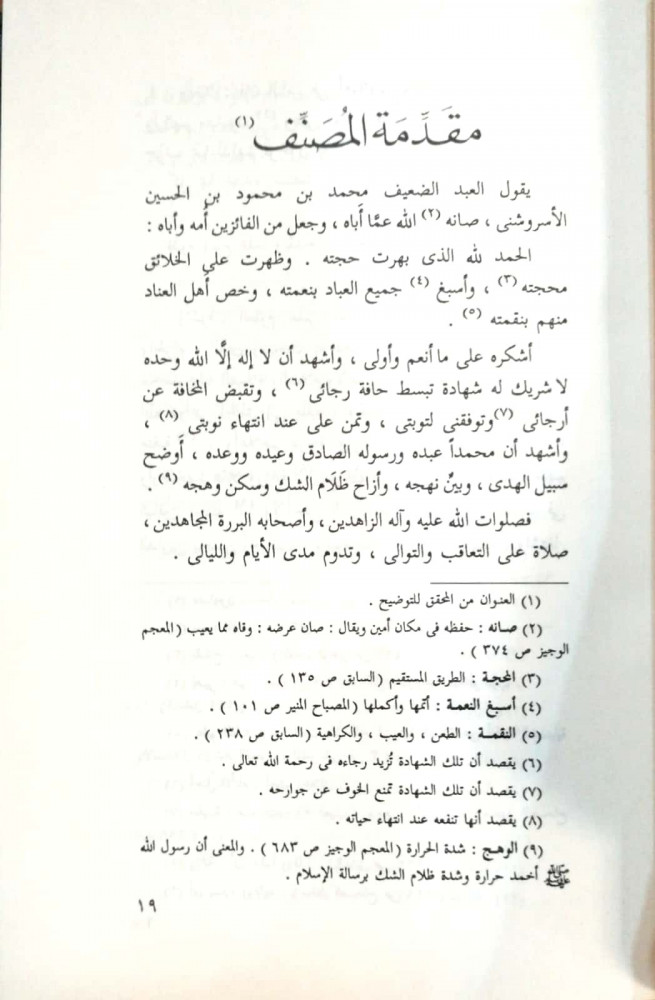 مقَدِّمَة المُصَنِّف (١)
يقول العبد الضعيف محمد بن محمود بن الحسين
الأسروشنى ، صانه (٢) الله عمَّا أَباه ، وجعل من الفائزين أُمه وأباه :
الحمد لله الذى بهرت حجته . وظهرت على الخلائق
محجته (٣) ، وأسبغ (٤) جميع العباد بنعمته ، وخص أهل العناد
منهم بنقمته (٥) .
أشكره على ما أنعم وأولى ، وأشهد أن لا إله إلَّا الله وحده
لا شريك له شهادة تبسط حافة رجائى (٦) ، وتقبض المخافة عن
أرجائى (٧) وتوفقنى لتوبتى ، وتمن على عند انتهاء نوبتى (٨) ،
وأشهد أن محمداً عبده ورسوله الصادق وعيده ووعده ، أَوضح
سبيل الهدى ، وبينَّ نهجه ، وأزاح ظَلَام الشك وسكن وهجه (٩) .
فصلوات الله عليه وآله الزاهدين ، وأصحابه البررة المجاهدين ،
صلاة على التعاقب والتوالى ، وتدوم مدى الأيام والليالى .
(١) العنوان من المحقق للتوضيح .
(٢) صانه : حفظه فى مكان أمين ويقال : صان عرضه : وقاه مما يعيب (المعجم
الوجيز ص ٣٧٤ ) .
(٣) المحجة : الطريق المستقيم (السابق ص ١٣٥ ) .
(٤) أسبغ النعمة : أتمها وأكملها (المصباح المنير ص ١٠١ ) .
(٥) النقمة : الطعن ، والعيب ، والكراهية (السابق ص ٢٣٨ ) .
(٦) يقصد أن تلك الشهادة تُزيد رجاءه فى رحمة الله تعالى .
(٧) يقصد أن تلك الشهادة تمنع الخوف عن جوارحه .
(٨) يقصد أنها تنفعه عند انتهاء حياته .
(٩) الوهج : شدة الحرارة (المعجم الوجيز ص ٦٨٣ ) . والمعنى أن رسول الله
ﷺ أخمد حرارة وشدة ظلام الشك برسالة الإسلام .
١٩